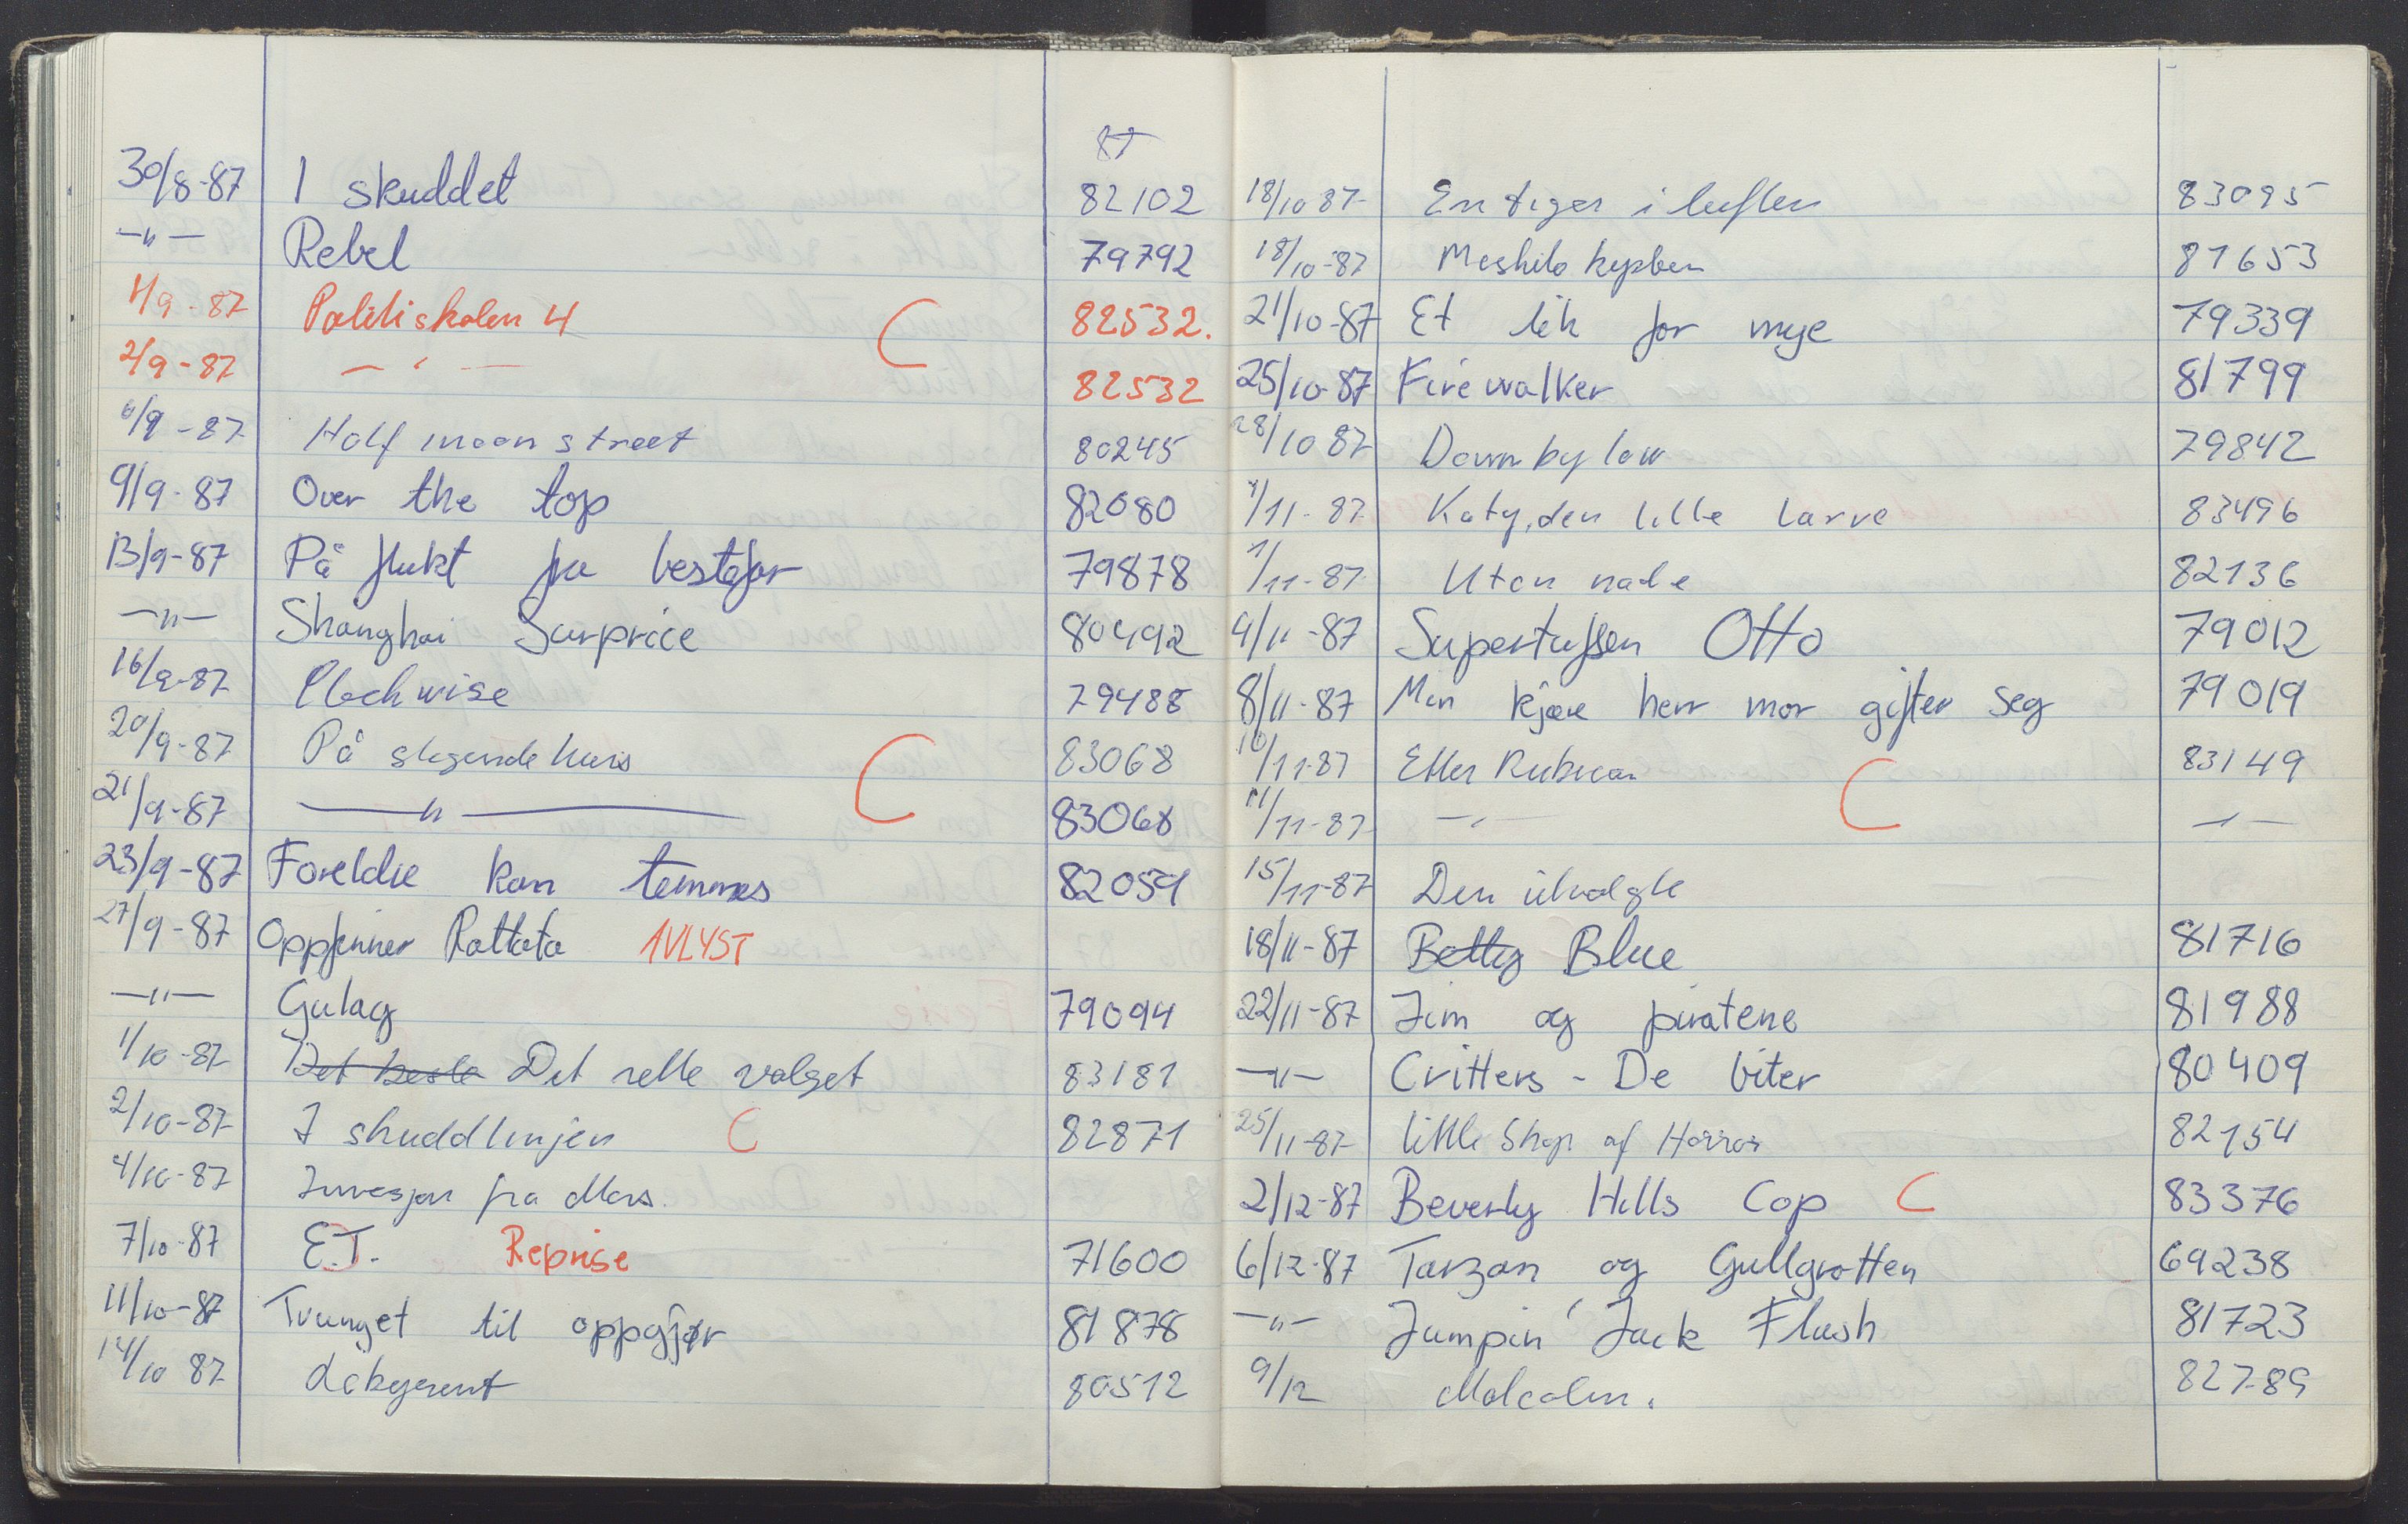 87
30/8-87 I skuddet 82102
—"— Rebel 79792
1/9-87 Politiskolen 4 C 82532.
2/9-87 — " — 82532
6/9-87 Half moon street 80245
9/9-87 Over the top 82080
13/9-87 På flukt fra bestefar 79878
—"— Shanghai Surprice 80492
16/9-87 Clockwise 79488
20/9-87 På slagende kurs C 83068
21/9-87 —"— 83068
23/9-87 Foreldre kan temmes 82059
27/9-87 Oppfinner Rattata AVLYST
—"— Gulag 79094
1/10-87 Det beste Det rette valget 83181
2/10-87 I skuddlinjen C 82871
4/10-87 Invasjon fra Mars.
7/10-87 E.T. Reprise 71600
11/10-87 Tvunget til oppgjør 81878
14/10 87 80512
18/10 87 En tiger i luften 83095
18/10-87 81653
21/10-87 Et lik for mye 79339
25/10-87 Firewalker 81799
28/10 87 Down by law 79842
1/11-87 Katy, den lille larve 83496
1/11-87 Uten nåde 82136
4/11-87 Supertuffen Otto 79012
8/11-87 Min kjære herr mor gifter seg 79019
10/11-87 Etter Rubicon C 83149
11/11-87 —"— —"—
15/11-87 Den utvalgte
18/11-87 Betty Blue 81716
22/11-87 Jim og piratene 81988
—"— Critters - De biter 80409
25/11-87 little Shop of Horror 82154
2/12-87 Beverly Hills Cop C 83376
6/12-87 Tarzan og Gullgrotten 69238
—"— Jumpin' Jack Flash 81723
9/12 Malcolm. 82789